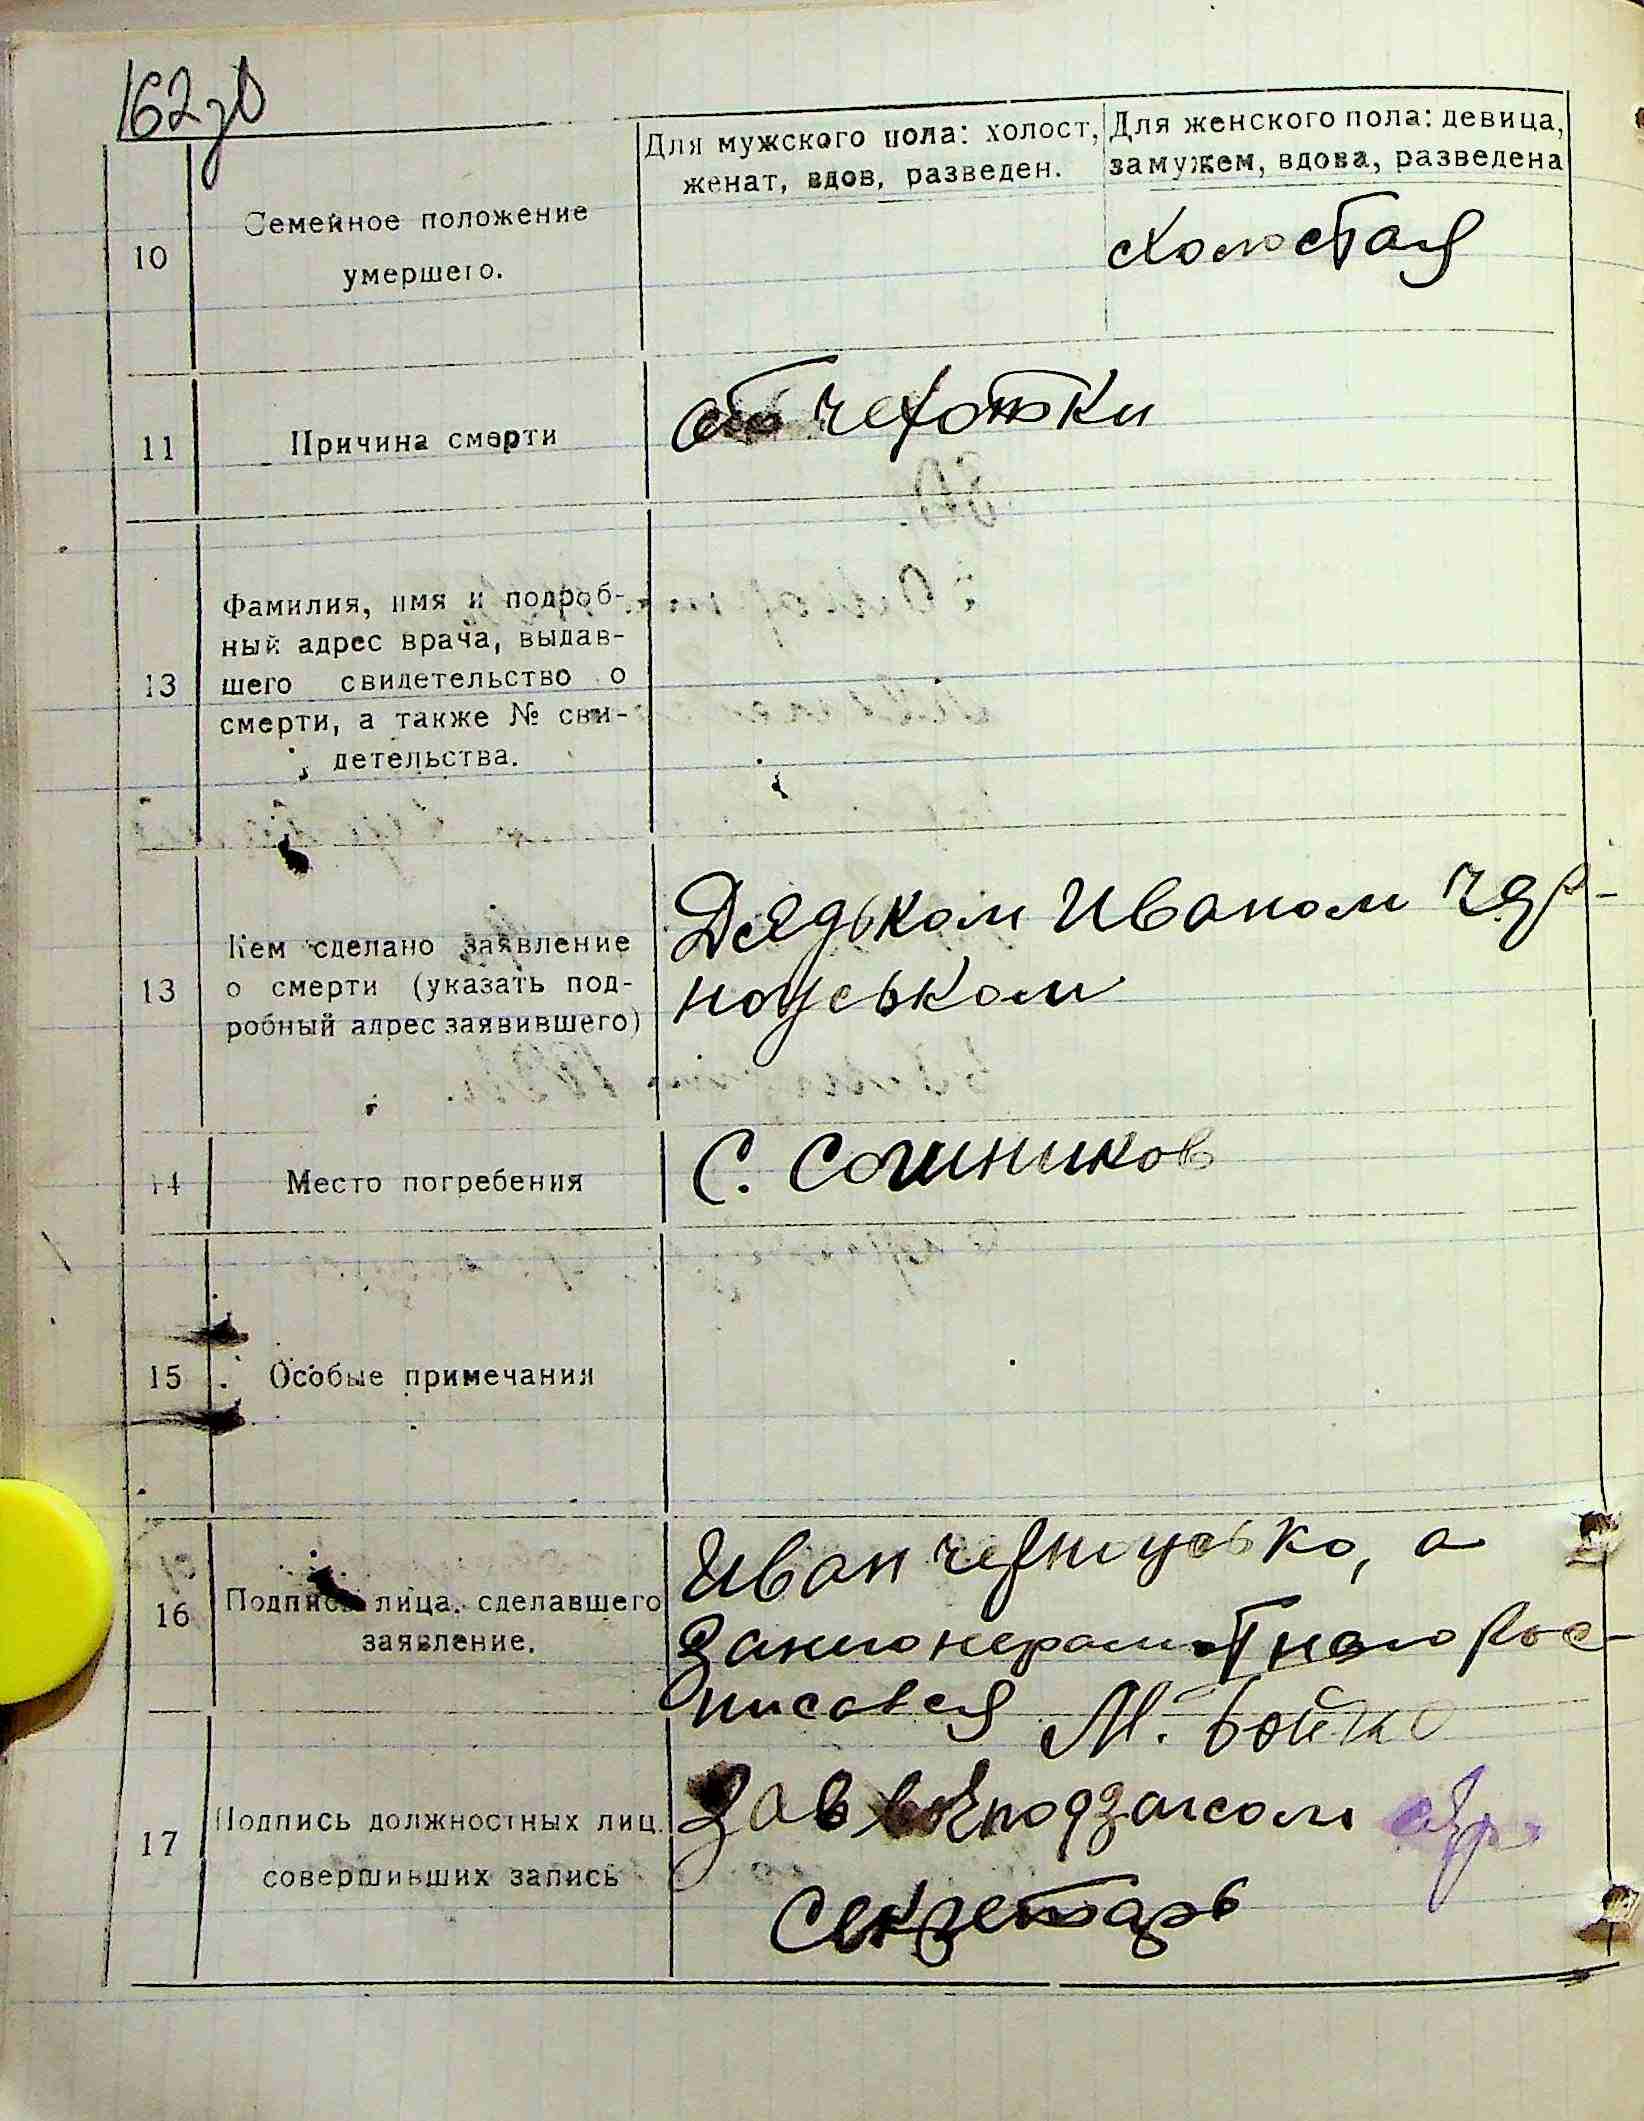 162зв
Для мужского пола: холост,
женат, вдов, разведен.
Для женского пола: девица,
замужем, вдова, разведена
10
Семейное положение
умершего.
холостая
11
Причина смерти
от чехотки
13
Фамилия, имя и подроб-
ный адрес врача, выдав-
шего свидетельство о
смерти, а также № сви-
детельства.
13
Кем сделано заявление
о смерти (указать под-
робный адрес заявившего)
Дядьком Иваном Чер-
ноуськом
14
Место погребения
С. Сошников
15
Особые примечания
16
Подпись лица, сделавшего
заявление.
Иван Черноусько, а
за него неграмотного рос-
писовся М. Бойко
17
Подпись должностных лиц,
совершивших запись
Зав подзагсом
Секретарь